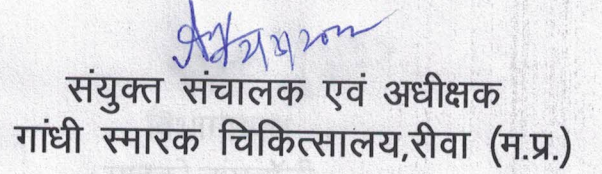 संयुक्त संचालक एवं अधीक्षक
गांधी स्मारक चिकित्सालय,रीवा (म.प्र.)